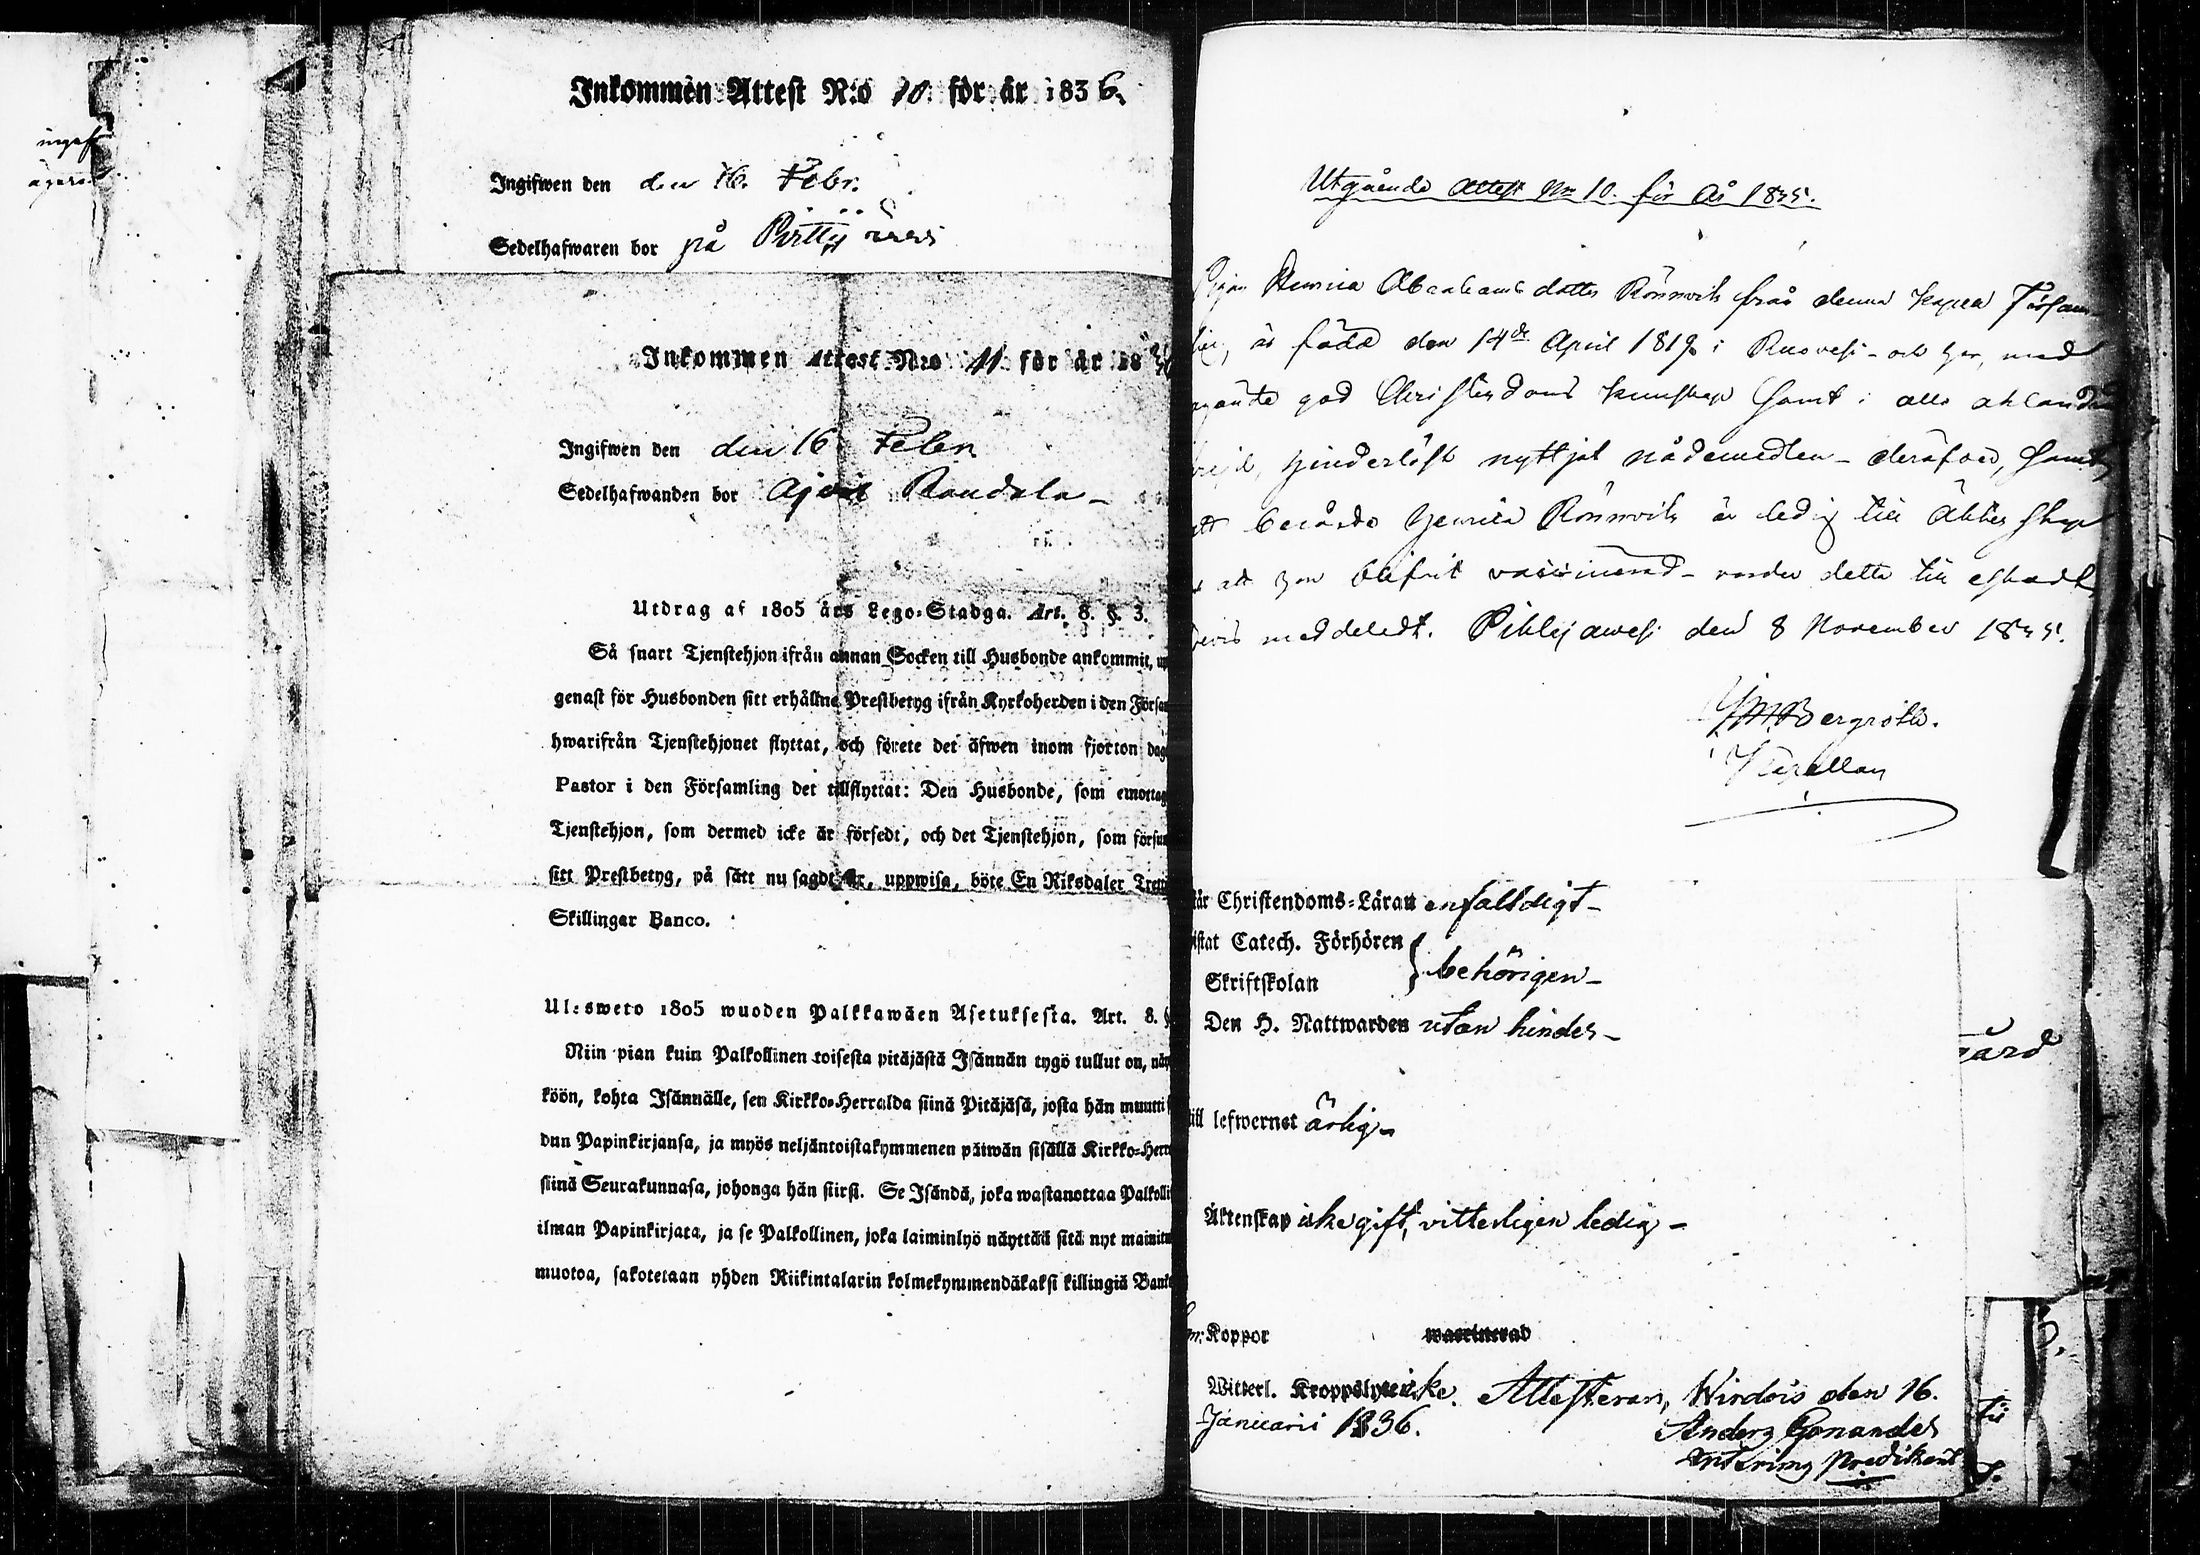 Inkommen Attest N:o 10 för år 1836.
Ingifwen den den 16. Febr.
Sedelhafwaren bor på
Inkommen Attest N:o 11 för år 18
Ingifwen den den 16 Febr
Sedelhafwanden bor Ajari Raudala
Utdrag af 1805 års Lego-Stadga. Art. 8. §. 3.
Så snart Tjenstehjon ifrån annan Socken till Husbonde ankommit,
genast för Husbonden sitt erhållne Prestbetyg ifrån Kyrkoherden i den
hwarifrån Tjenstehjonet flyttat, och förete det äfwen inom fjorton
Pastor i den Församling det tillflyttat: Den Husbonde, som
Tjenstehjon, som dermed icke är försedt, och det Tjenstehjon, som
sitt Prestbetyg, på sätt nu sagdt är, uppwisa, böte En Riksdaler
Skillingar Banco.
Ulosweto 1805 wuoden Palkkawäen Asetuksesta. Art. 8.
Niin pian kuin Palkollinen toisesta pitäjästä Isännän tygö tullut on,
köön, kohta Isännälle, sen Kirkko-Herralda siinä Pitäjäsä, josta hän muutti
dun Papinkirjansa, ja myös neljäntoistakymmenen päiwän sisällä
siinä Seurakunnasa, johonga hän siirsi. Se Isändä, joka wastanottaa
ilman Papinkirjata, ja se Palkollinen, joka laiminlyö näyttää sitä nyt
muotoa, sakotetaan yhden Riikintalarin kolmekymmendäkaksi killingiä
Utgående Attest No 10. för År 1835.
Pigan Henrica Abrahams dotter Rönnvik från denna Kapell
är född den 14de April 1819 i Ruovesi och har, med
god Christendoms kunskap samt i alla
hinderlöst nyttjat nådemedlen deräford, samt
att berörde Henrica Rönnvik är ledig till Äktenskap
att hon blifvit vaccinerad varder detta till
bevis meddeledt. Pihlajawesi den 8 November 1835.
Bergroth.
Kapellan
Christendoms-Läran enfaldigt
Catech. Förhören
Skriftskolan } behörigen
Den H. Nattwarden utan hinder
till lefwernet ärlig
Äktenskap icke gift, vitterligen ledig
Koppor waccinerad
Witterl. Kroppslyte icke. Attesteras, Wirdois den 16.
Januarii 1836. Anders Gonander
Predikant
gård